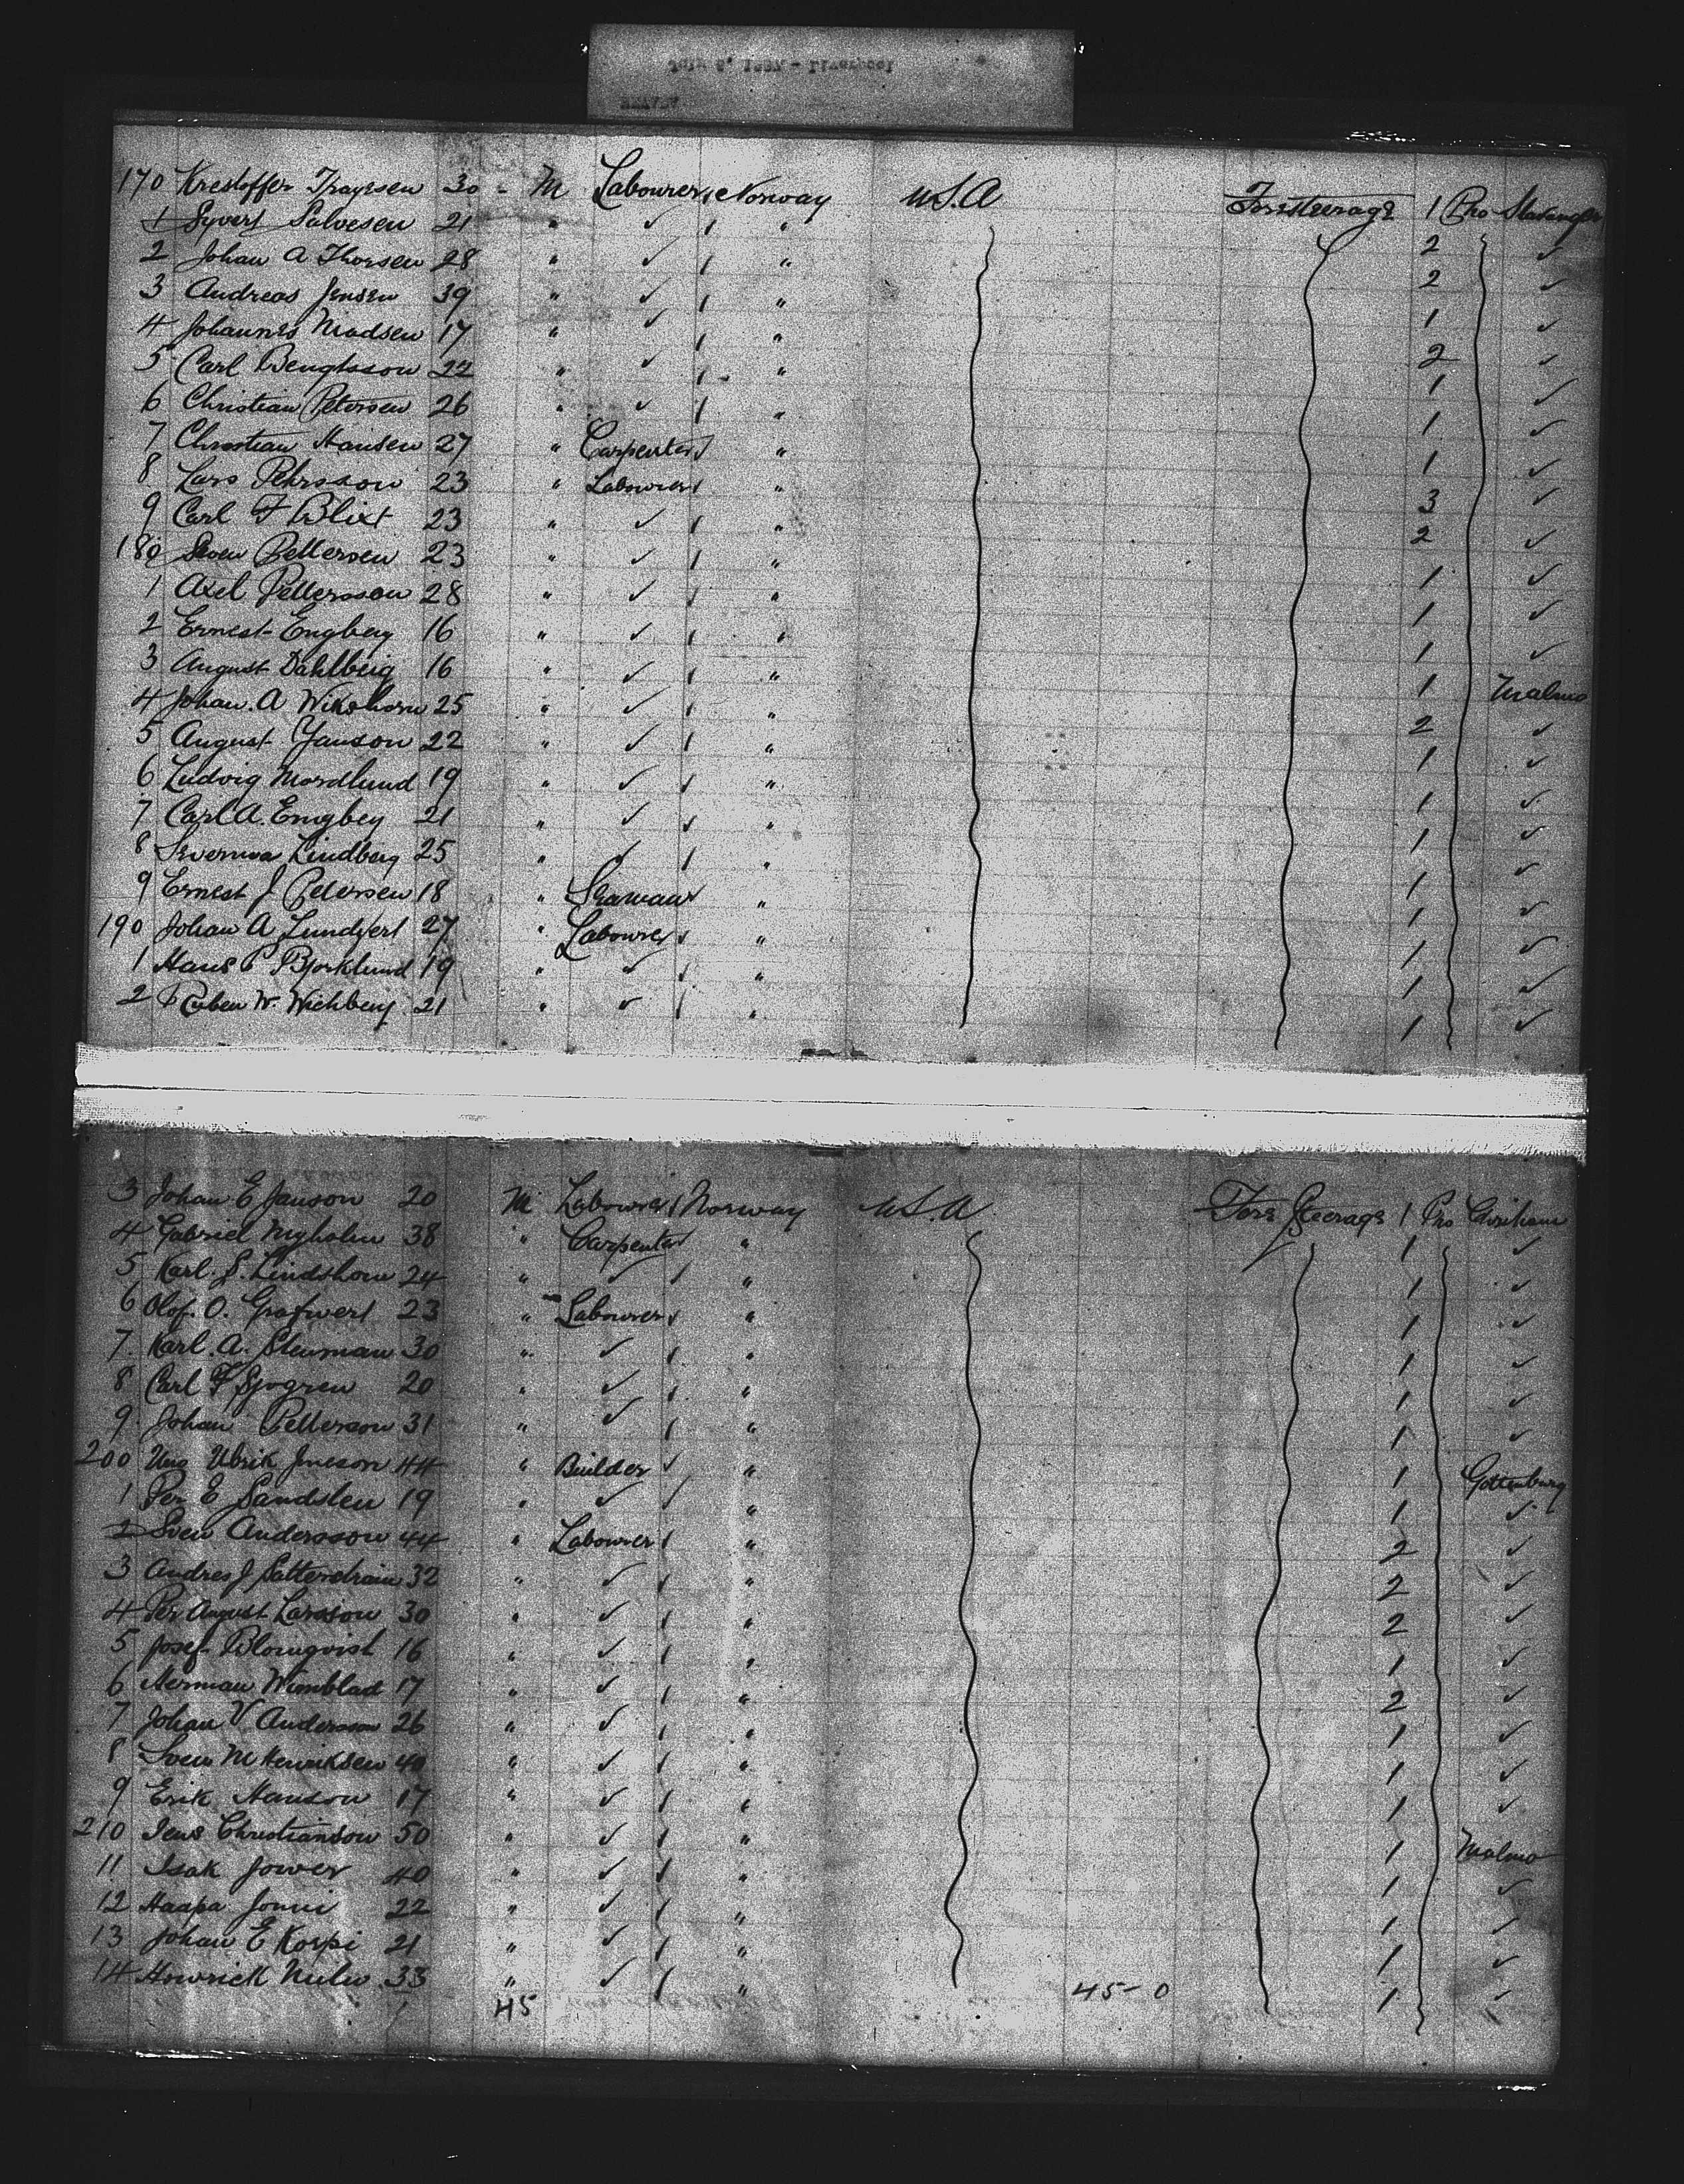 July 5, 1887 - Liverpool
170 Krestoffer 30 - M Labourer 1 Norway U.S.A Fore Steerage 1 Pro Stavanger
1 Syvert Salvesen 21 " ✓ 1 " 2 ✓
2 Johan A Thorsen 28 " ✓ 1 " 2 ✓
3 Andreas Jensen 39 " ✓ 1 " 1 ✓
4 Johannes Madsen 17 " ✓ 1 " 2 ✓
5 Carl Bengtsson 22 " ✓ 1 " 1 ✓
6 Christian Petersen 26 " ✓ 1 " 1 ✓
7 Christian Hansen 27 " Carpenter 1 " 1 ✓
8 Lars Pehrsson 23 " Labourer 1 " 3 ✓
9 Carl F Blixt 23 " ✓ 1 " 2 ✓
180 Sven Pettersen 23 " ✓ 1 " 1 ✓
1 Axel Pettersson 28 " ✓ 1 " 1 ✓
2 Ernest Engberg 16 " ✓ 1 " 1 ✓
3 August Dahlberg 16 " ✓ 1 " 1 Malmo
4 Johan. A 25 " ✓ 1 " 2 ✓
5 August Janson 22 " ✓ 1 " 1 ✓
6 Ludvig Nordlund 19 " ✓ 1 " 1 ✓
7 Carl A. Engberg 21 " ✓ 1 " 1 ✓
8 Lindberg 25 " ✓ 1 " 1 ✓
9 Ernest J Petersen 18 " Seaman 1 " 1 ✓
190 Johan A 27 " Labourer 1 " 1 ✓
1 Hans P Bjorklund 19 " ✓ 1 " 1 ✓
2 Ruben W. Wichberg 21 " ✓ 1 " 1 ✓
3 Johan E Janson 20 M Labourer 1 Norway U.S.A Fore Steerage 1 Pro
4 Gabriel Nyholm 38 " Carpenter 1 " 1 ✓
5 Karl. S. 24 " ✓ 1 " 1 ✓
6 Olof. O. 23 " Labourer 1 " 1 ✓
7. Karl. A. Stenman 30 " ✓ 1 " 1 ✓
8 Carl F Sjogren 20 " ✓ 1 " 1 ✓
9. Johan Petterson 31 " ✓ 1 " 1 ✓
200 Ulrik 44 " Builder 1 " 1 Gottenburg
1 Per E Sandsten 19 " ✓ 1 " 1 ✓
2 Sven Andersson 44 " Labourer 1 " 2 ✓
3 Andres J 32 " ✓ 1 " 2 ✓
4 Per August Larsson 30 " ✓ 1 " 2 ✓
5 Josef Blomqvist 16 " ✓ 1 " 1 ✓
6 Herman 17 " ✓ 1 " 2 ✓
7 Johan V. Andersson 26 " ✓ 1 " 1 ✓
8 Sven M Henriksen 40 " ✓ 1 " 1 ✓
9 Erik Hanson 17 " ✓ 1 " 1 ✓
210 Jens Christianson 50 " ✓ 1 " 1 Malmo
11 Isak 40 " ✓ 1 " 1 ✓
12 Haapa 22 " ✓ 1 " 1 ✓
13 Johan E Korpi 21 " ✓ 1 " 1 ✓
14 33 " ✓ 1 " 1 ✓
45 45 - 0